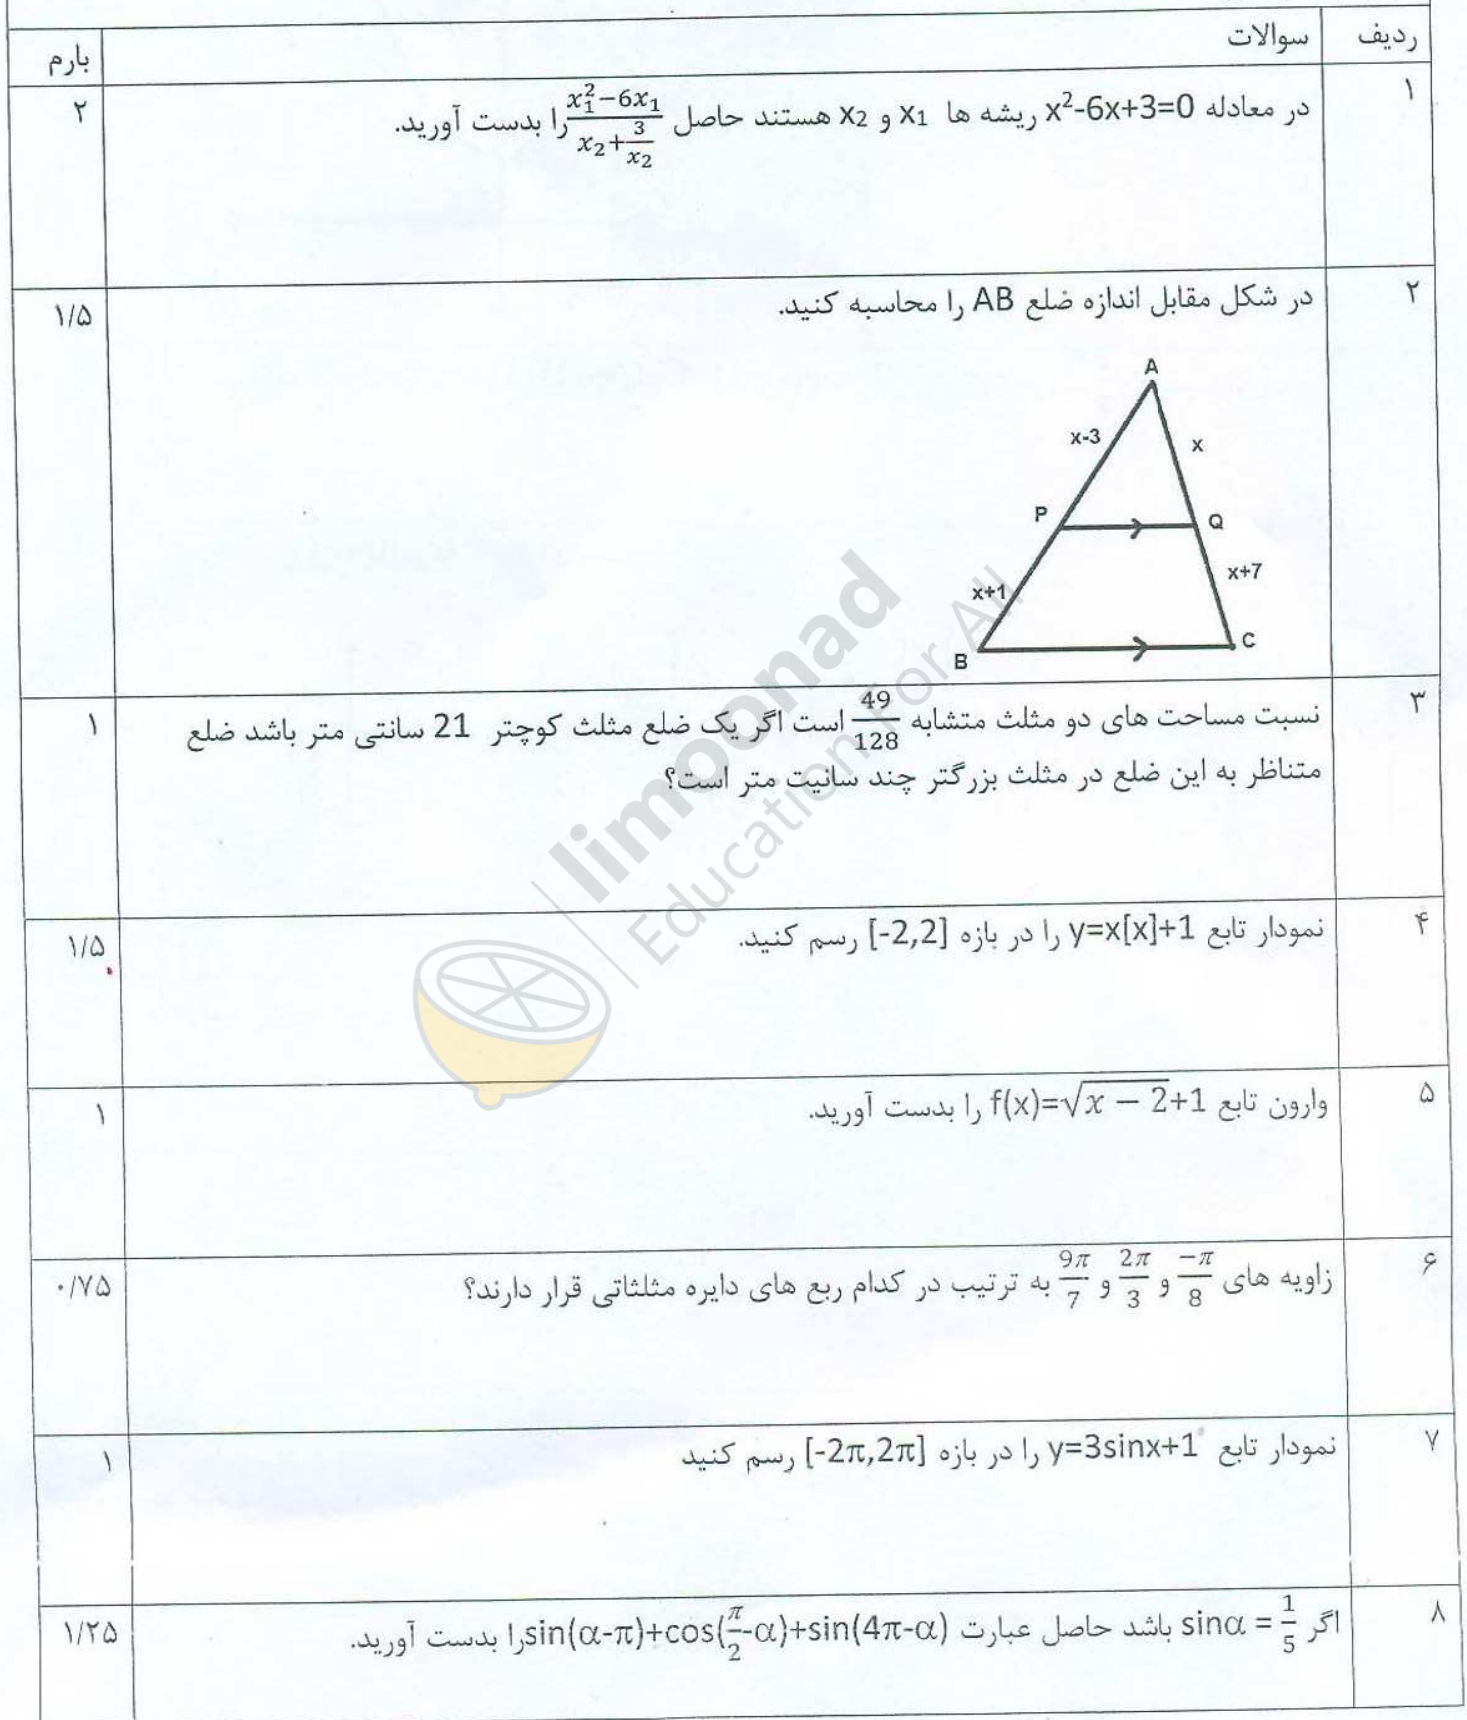 ردیف سوالات بارم
۱ در معادله x²-6x+3=0 ریشه ها x₁ و x₂ هستند حاصل \frac{x_1^2-6x_1}{x_2+\frac{3}{x_2}} را بدست آورید. ۲
۲ در شکل مقابل اندازه ضلع AB را محاسبه کنید. ۱/۵
A
x-3 x
P Q
x+1 x+7
B C
۳ نسبت مساحت های دو مثلث متشابه \frac{49}{128} است اگر یک ضلع مثلث کوچتر 21 سانتی متر باشد ضلع ۱
متناظر به این ضلع در مثلث بزرگتر چند سانیت متر است؟
limoonad
Education For All
۴ نمودار تابع y=x[x]+1 را در بازه [-2,2] رسم کنید. ۱/۵
۵ وارون تابع f(x)=\sqrt{x-2}+1 را بدست آورید. ۱
۶ زاویه های \frac{-π}{8} و \frac{2π}{3} و \frac{9π}{7} به ترتیب در کدام ربع های دایره مثلثاتی قرار دارند؟ ۰/۷۵
۷ نمودار تابع y=3sinx+1 را در بازه [-2π,2π] رسم کنید ۱
۸ اگر sinα = \frac{1}{5} باشد حاصل عبارت sin(α-π)+cos(\frac{π}{2}-α)+sin(4π-α) را بدست آورید. ۱/۲۵